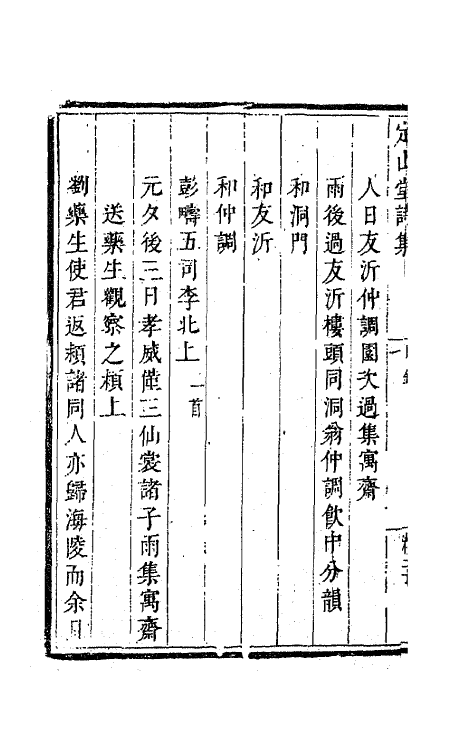 定山堂詩集
人日友沂仲調園次過集寓齋
雨後過友沂樓頭同洞翁仲調飲中分韻
和洞門
和友沂
和仲調
彭疇五司李北上 一首
元夕後三日孝威偕三仙裳諸子雨集寓齋
送藥生觀察之潁上
劉藥生使君返潁諸同人亦歸海陵而余